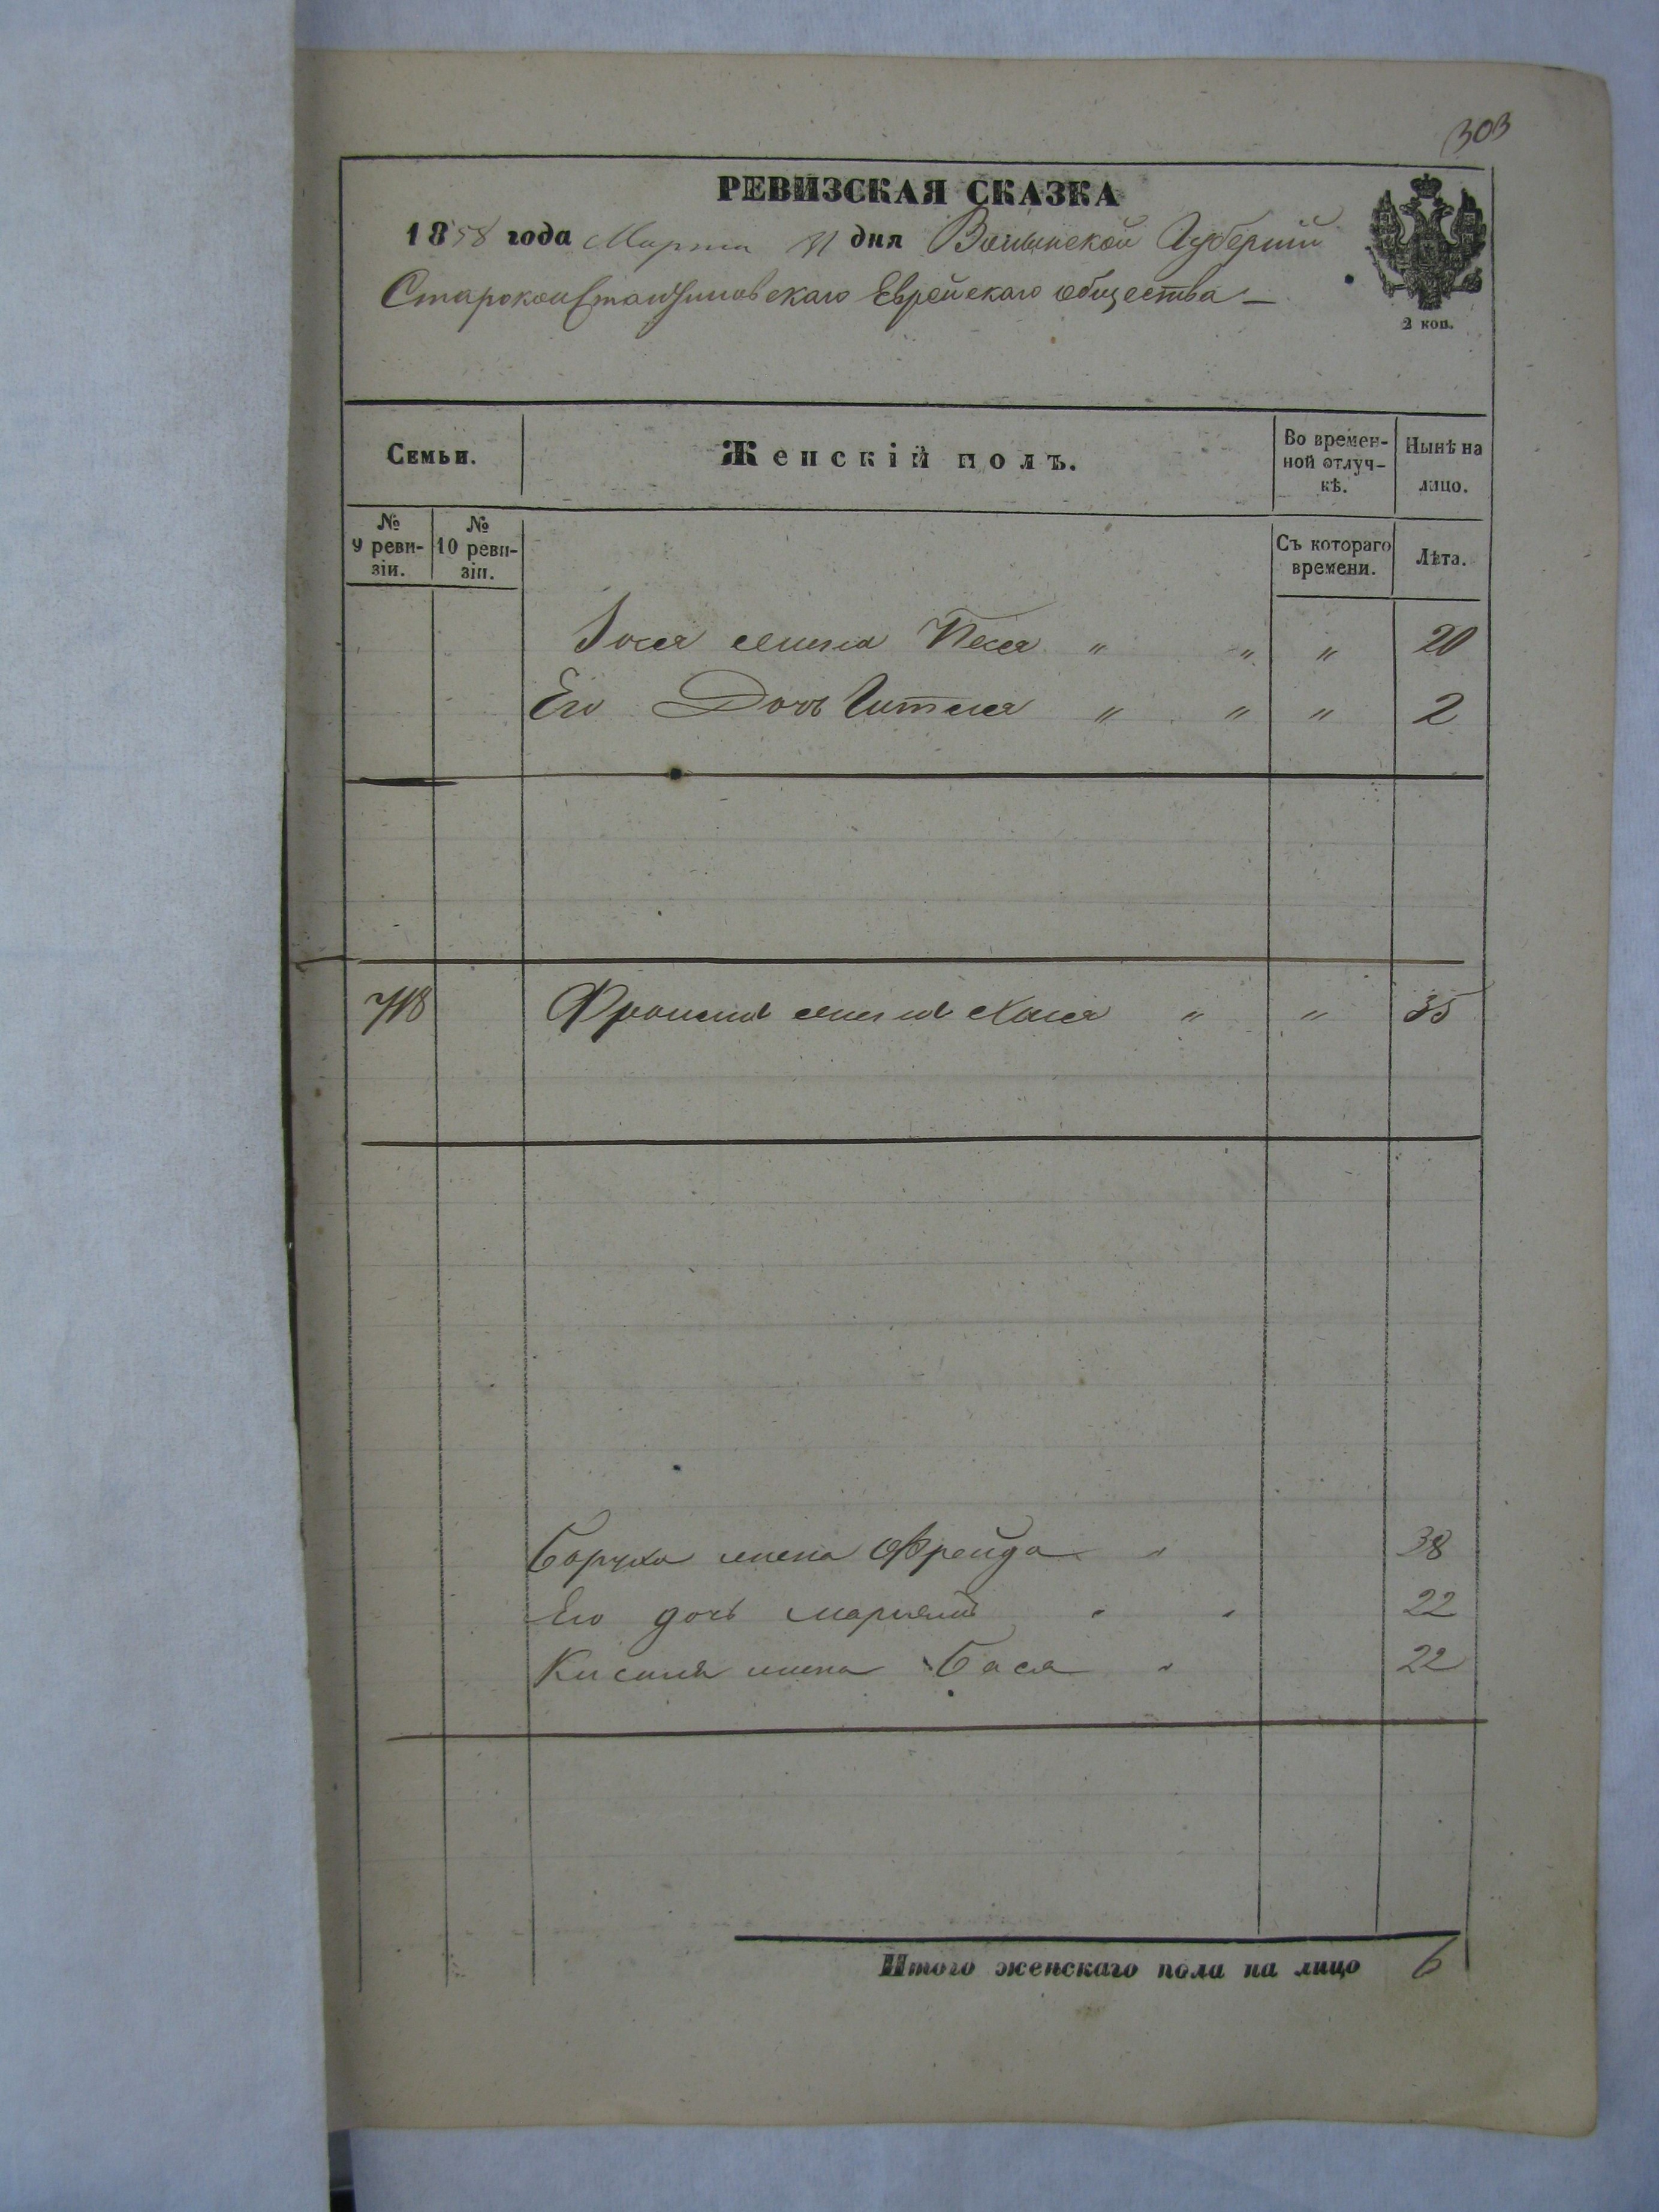 303
РЕВИЗСКАЯ СКАЗКА
1858 года Марта 31 дня Волынской Губернии
Староконстантиновскаго Еврейскаго общества —
2 коп.
Семьи.
Женскій полъ.
Во времен-
ной отлуч-
кѣ.
Нынѣ на
лицо.
№
9 реви-
зіи.
№
10 реви-
зіи.
Съ котораго
времени.
Лѣта.
жена Песя " " " 20
Его Дочь Гитля " " " 2
718 жена Хая " " 35
Боруха жена Фрейда " 38
Его дочь Марьямъ " " 22
Кисиля жена Бася " 22
Итого женскаго пола на лицо 6